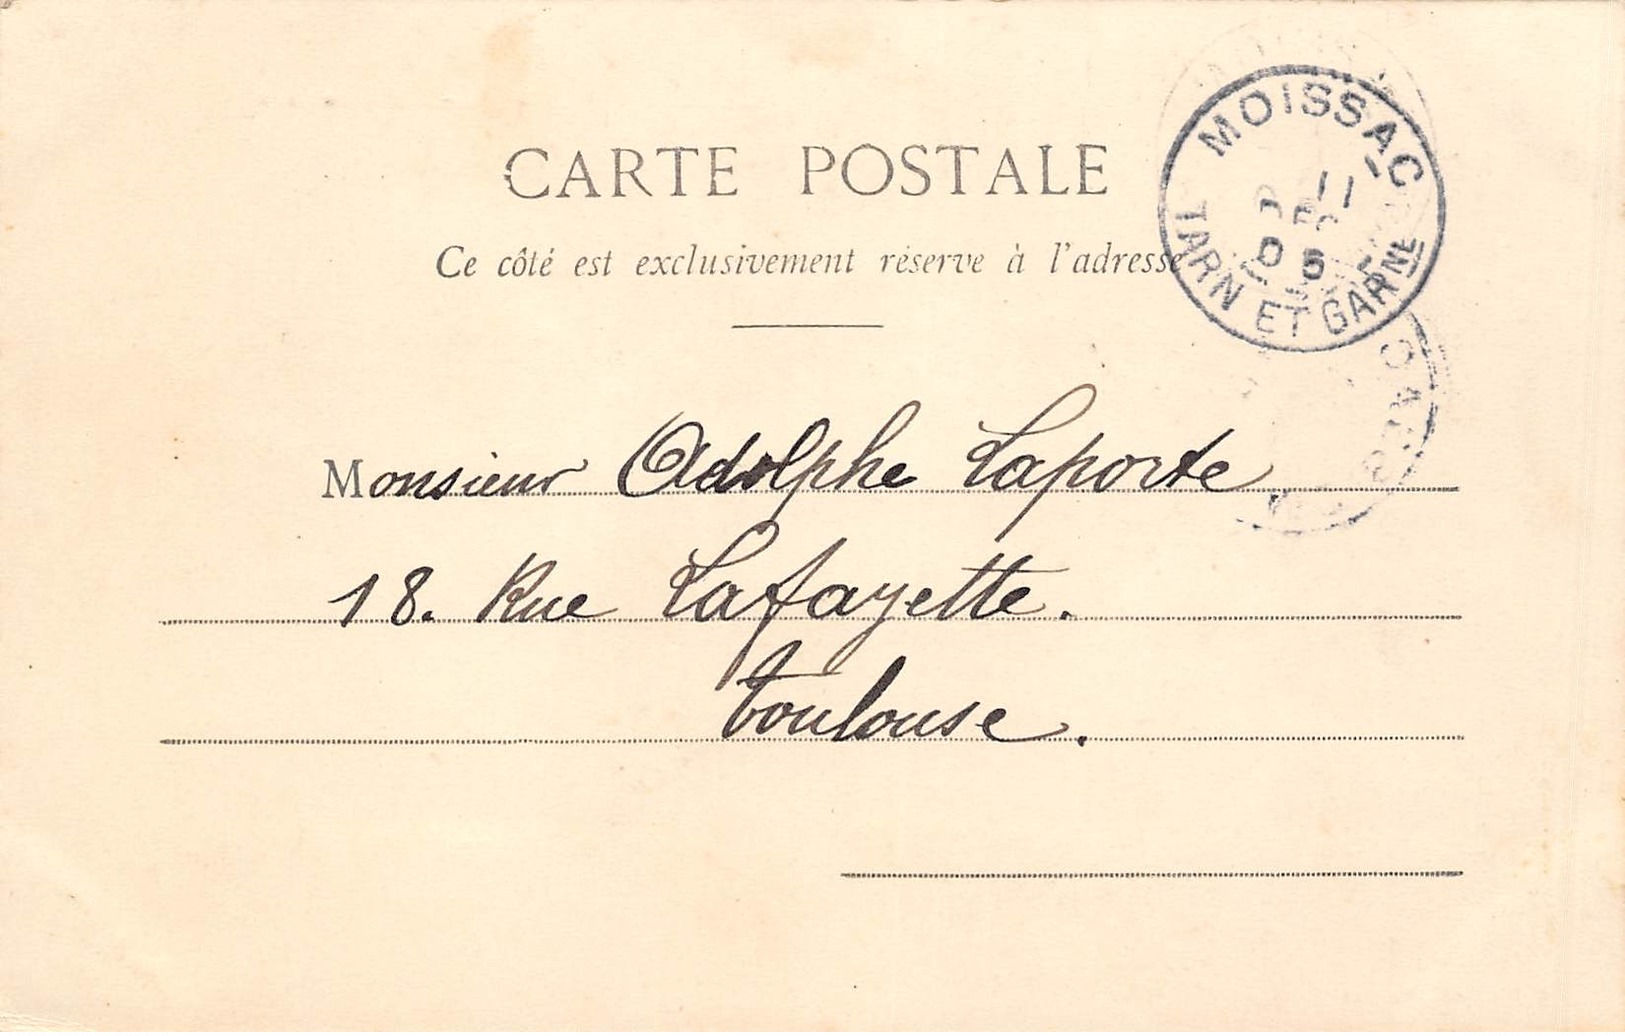 CARTE POSTALE
Ce côté est exclusivement réservé à l'adresse
MOISSAC
11
05
TARN ET GARNE
Monsieur Adolphe Laporte
18. Rue Lafayette.
Toulouse.